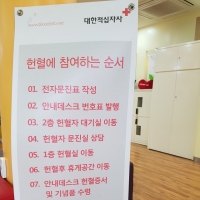 대한적십자사
헌혈에 참여하는 순서
01. 전자문진표 작성
02. 안내데스크 번호표 발행
03. 2층 헌혈자 대기실 이동
04. 헌혈자 문진실 상담
05. 1층 헌혈실 이동
06. 헌혈후 휴게공간 이동
07. 안내데스크 헌혈증서
및 기념품 수령